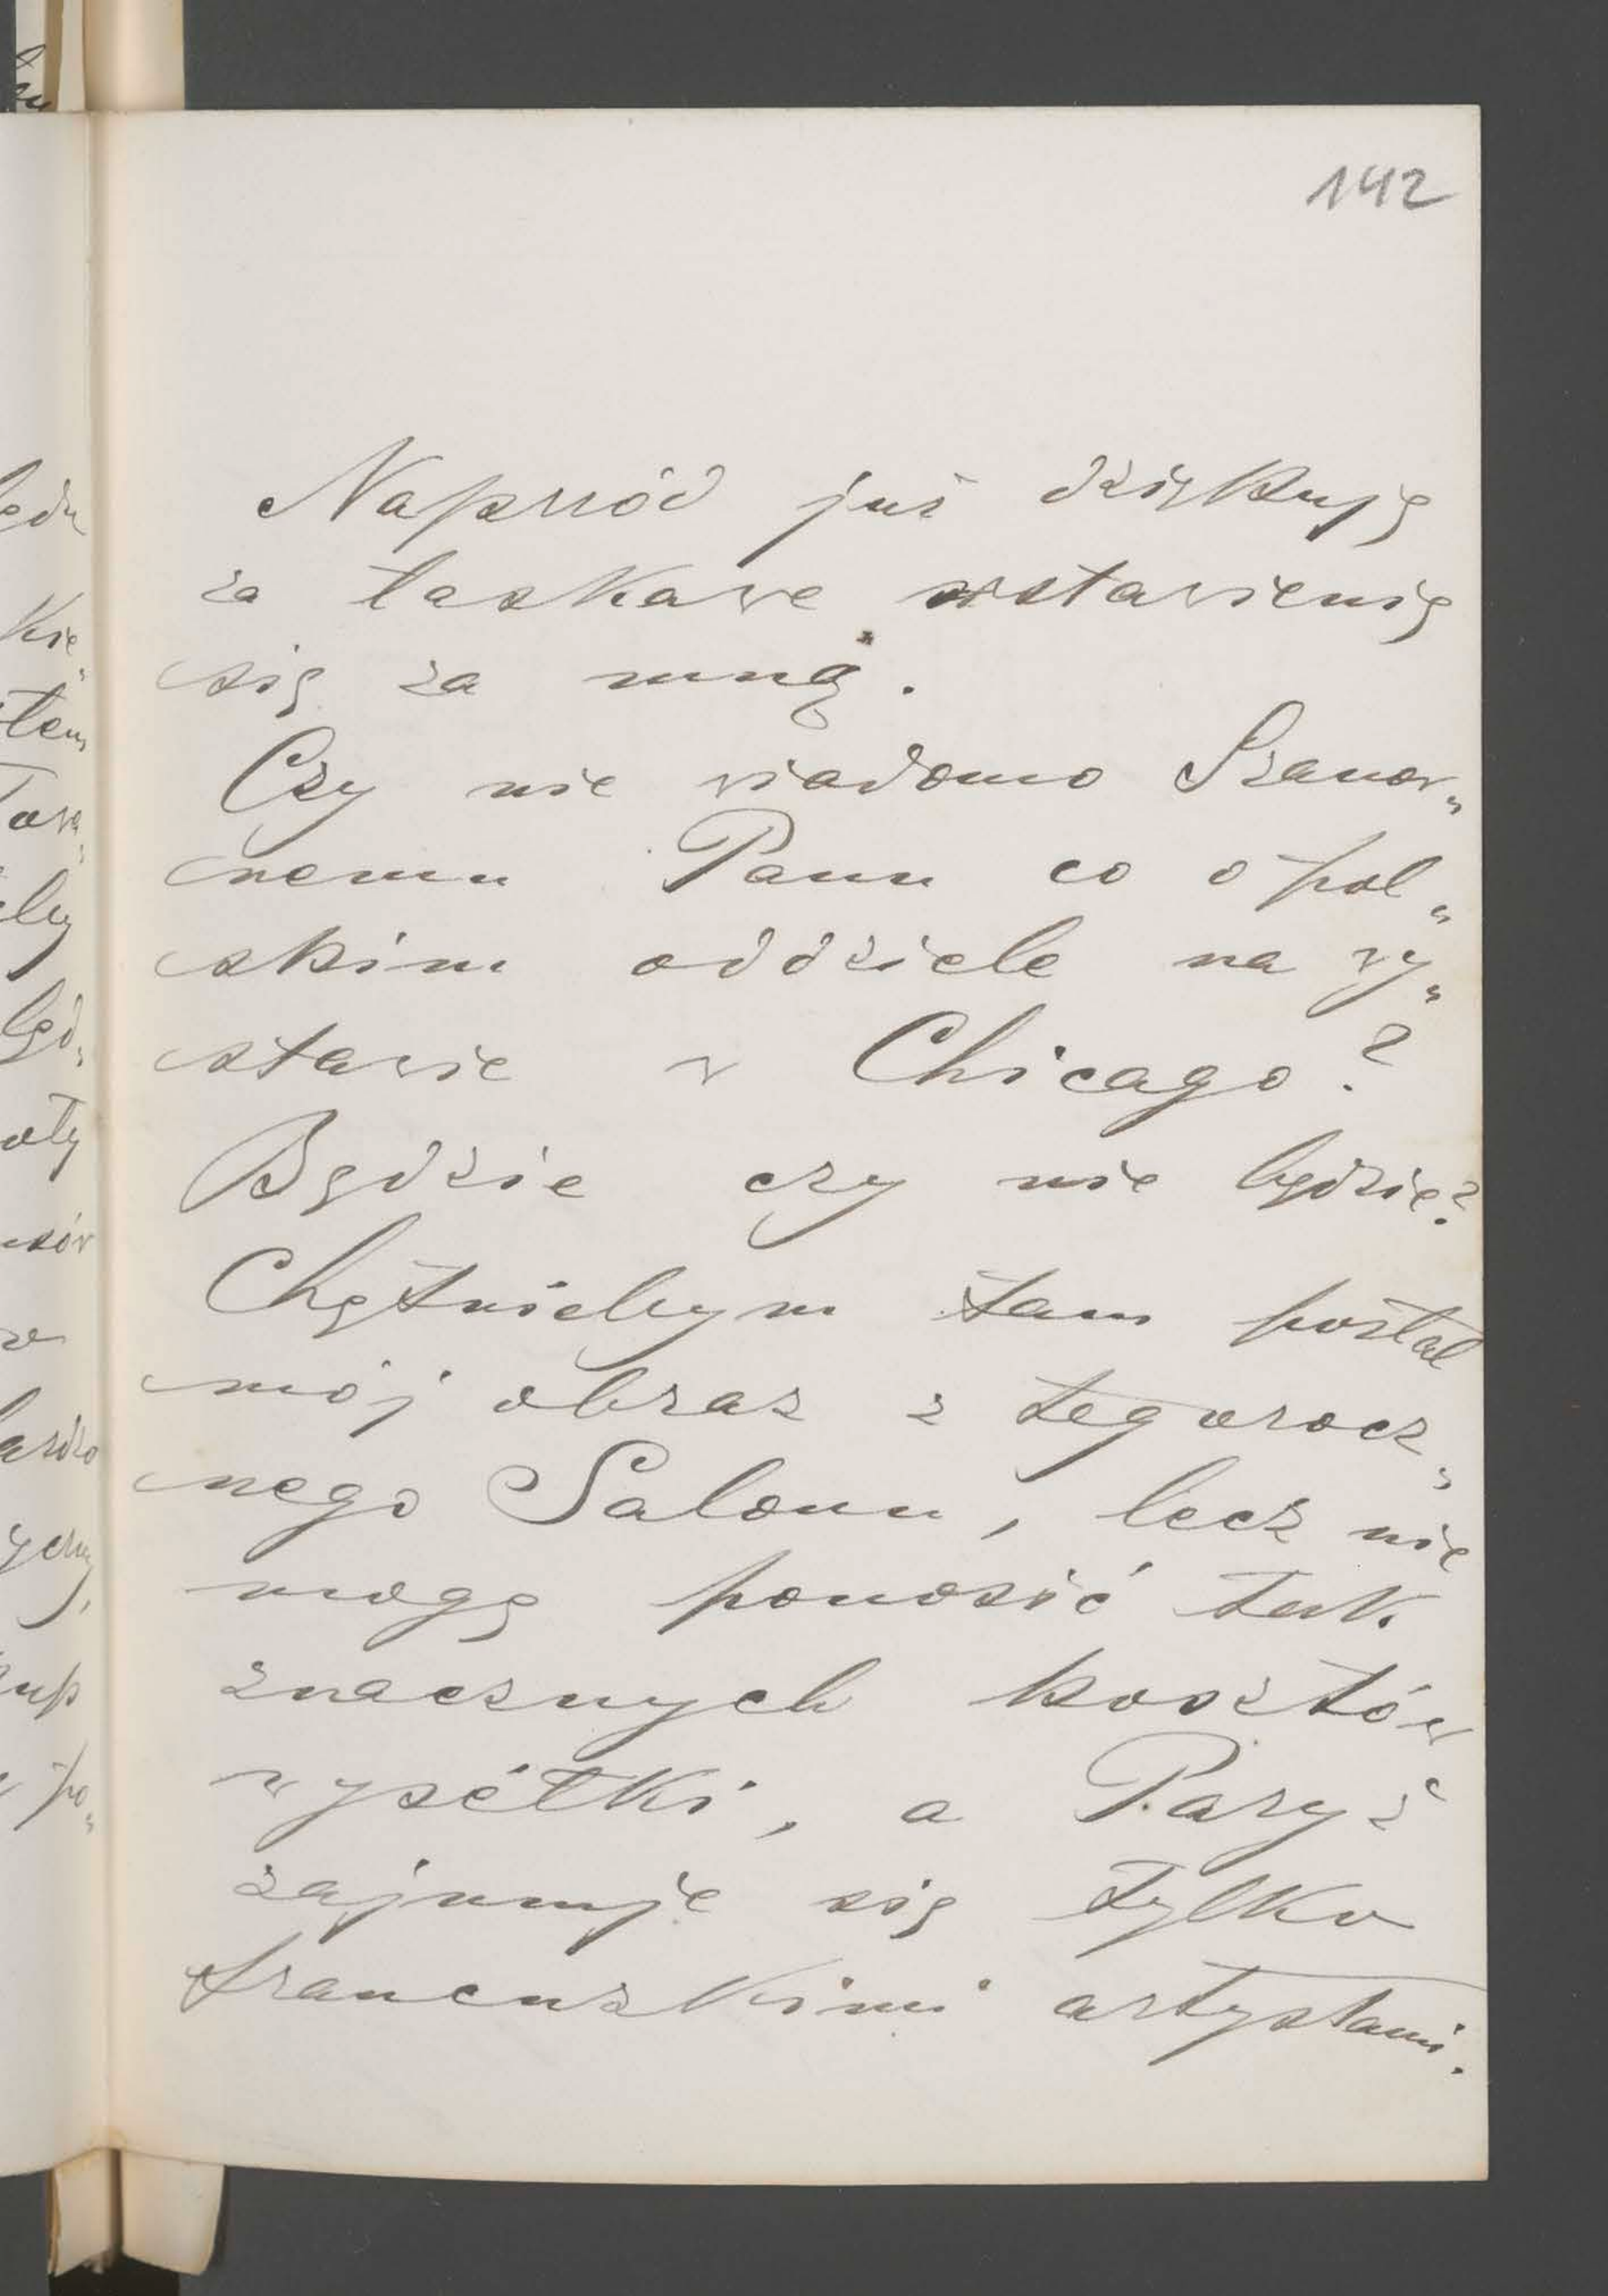 142
Naprzód już dziękuję
za łaskawe wstawienię
się za mną.
Czy nie wiadomo Szanow„
nemu Panu co o pol„
skim oddziele na wy„
stawie w Chicago?
Będzie czy nie będzie?
Chętniebym tam posłał
mój obraz z tegorocz„
nego Salonu, lecz nie
mogę ponosić tak
znacznych kosztów
wysełki, a Paryż
zajmuje się tylko
francuzkimi artystami.